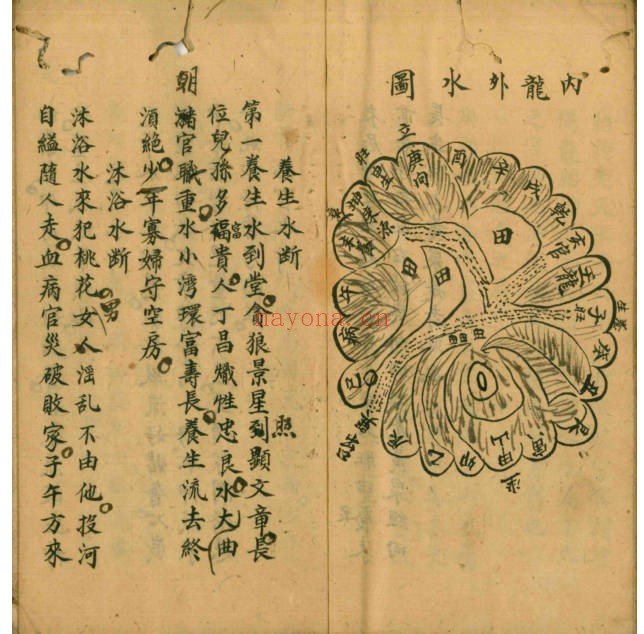 內龍外水圖
立
庚向
酉
辛
戌
乾
亥官
壬龍
子旺
癸
丑
艮
寅
甲山
卯
乙
辰
巳
午
病
坤
旺
田
田
田
養生水断
第一養生水到堂貪狼景星到顯文章長
照
位兒孫多福貴人丁昌熾性忠良水大曲
富
朝
瀦官職重水小灣環富壽長養生流去終
湏絶少年寡婦守空房
沐浴水断
沐浴水來犯桃花女人淫乱不由他投河
男
自縊隨人走血病官災破敗家子午方來
nayona.cn